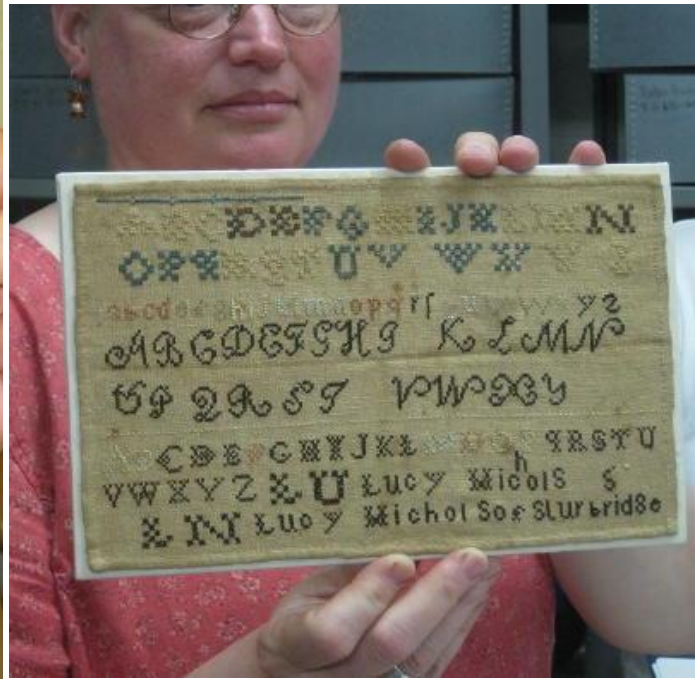 A B C D E F G H I J K L M N
O P R S T U V W X Y Z
a b c d e f g h i j k l m n o p q r ſ s t u v w x y z
A B C D E F G H I K L M N
O P Q R S T V W X Y
A B C D E F G H I J K L M N O P Q R S T U
V W X Y Z L U Lucy Nichols S
L N Lucy Nichols of Sturbridge